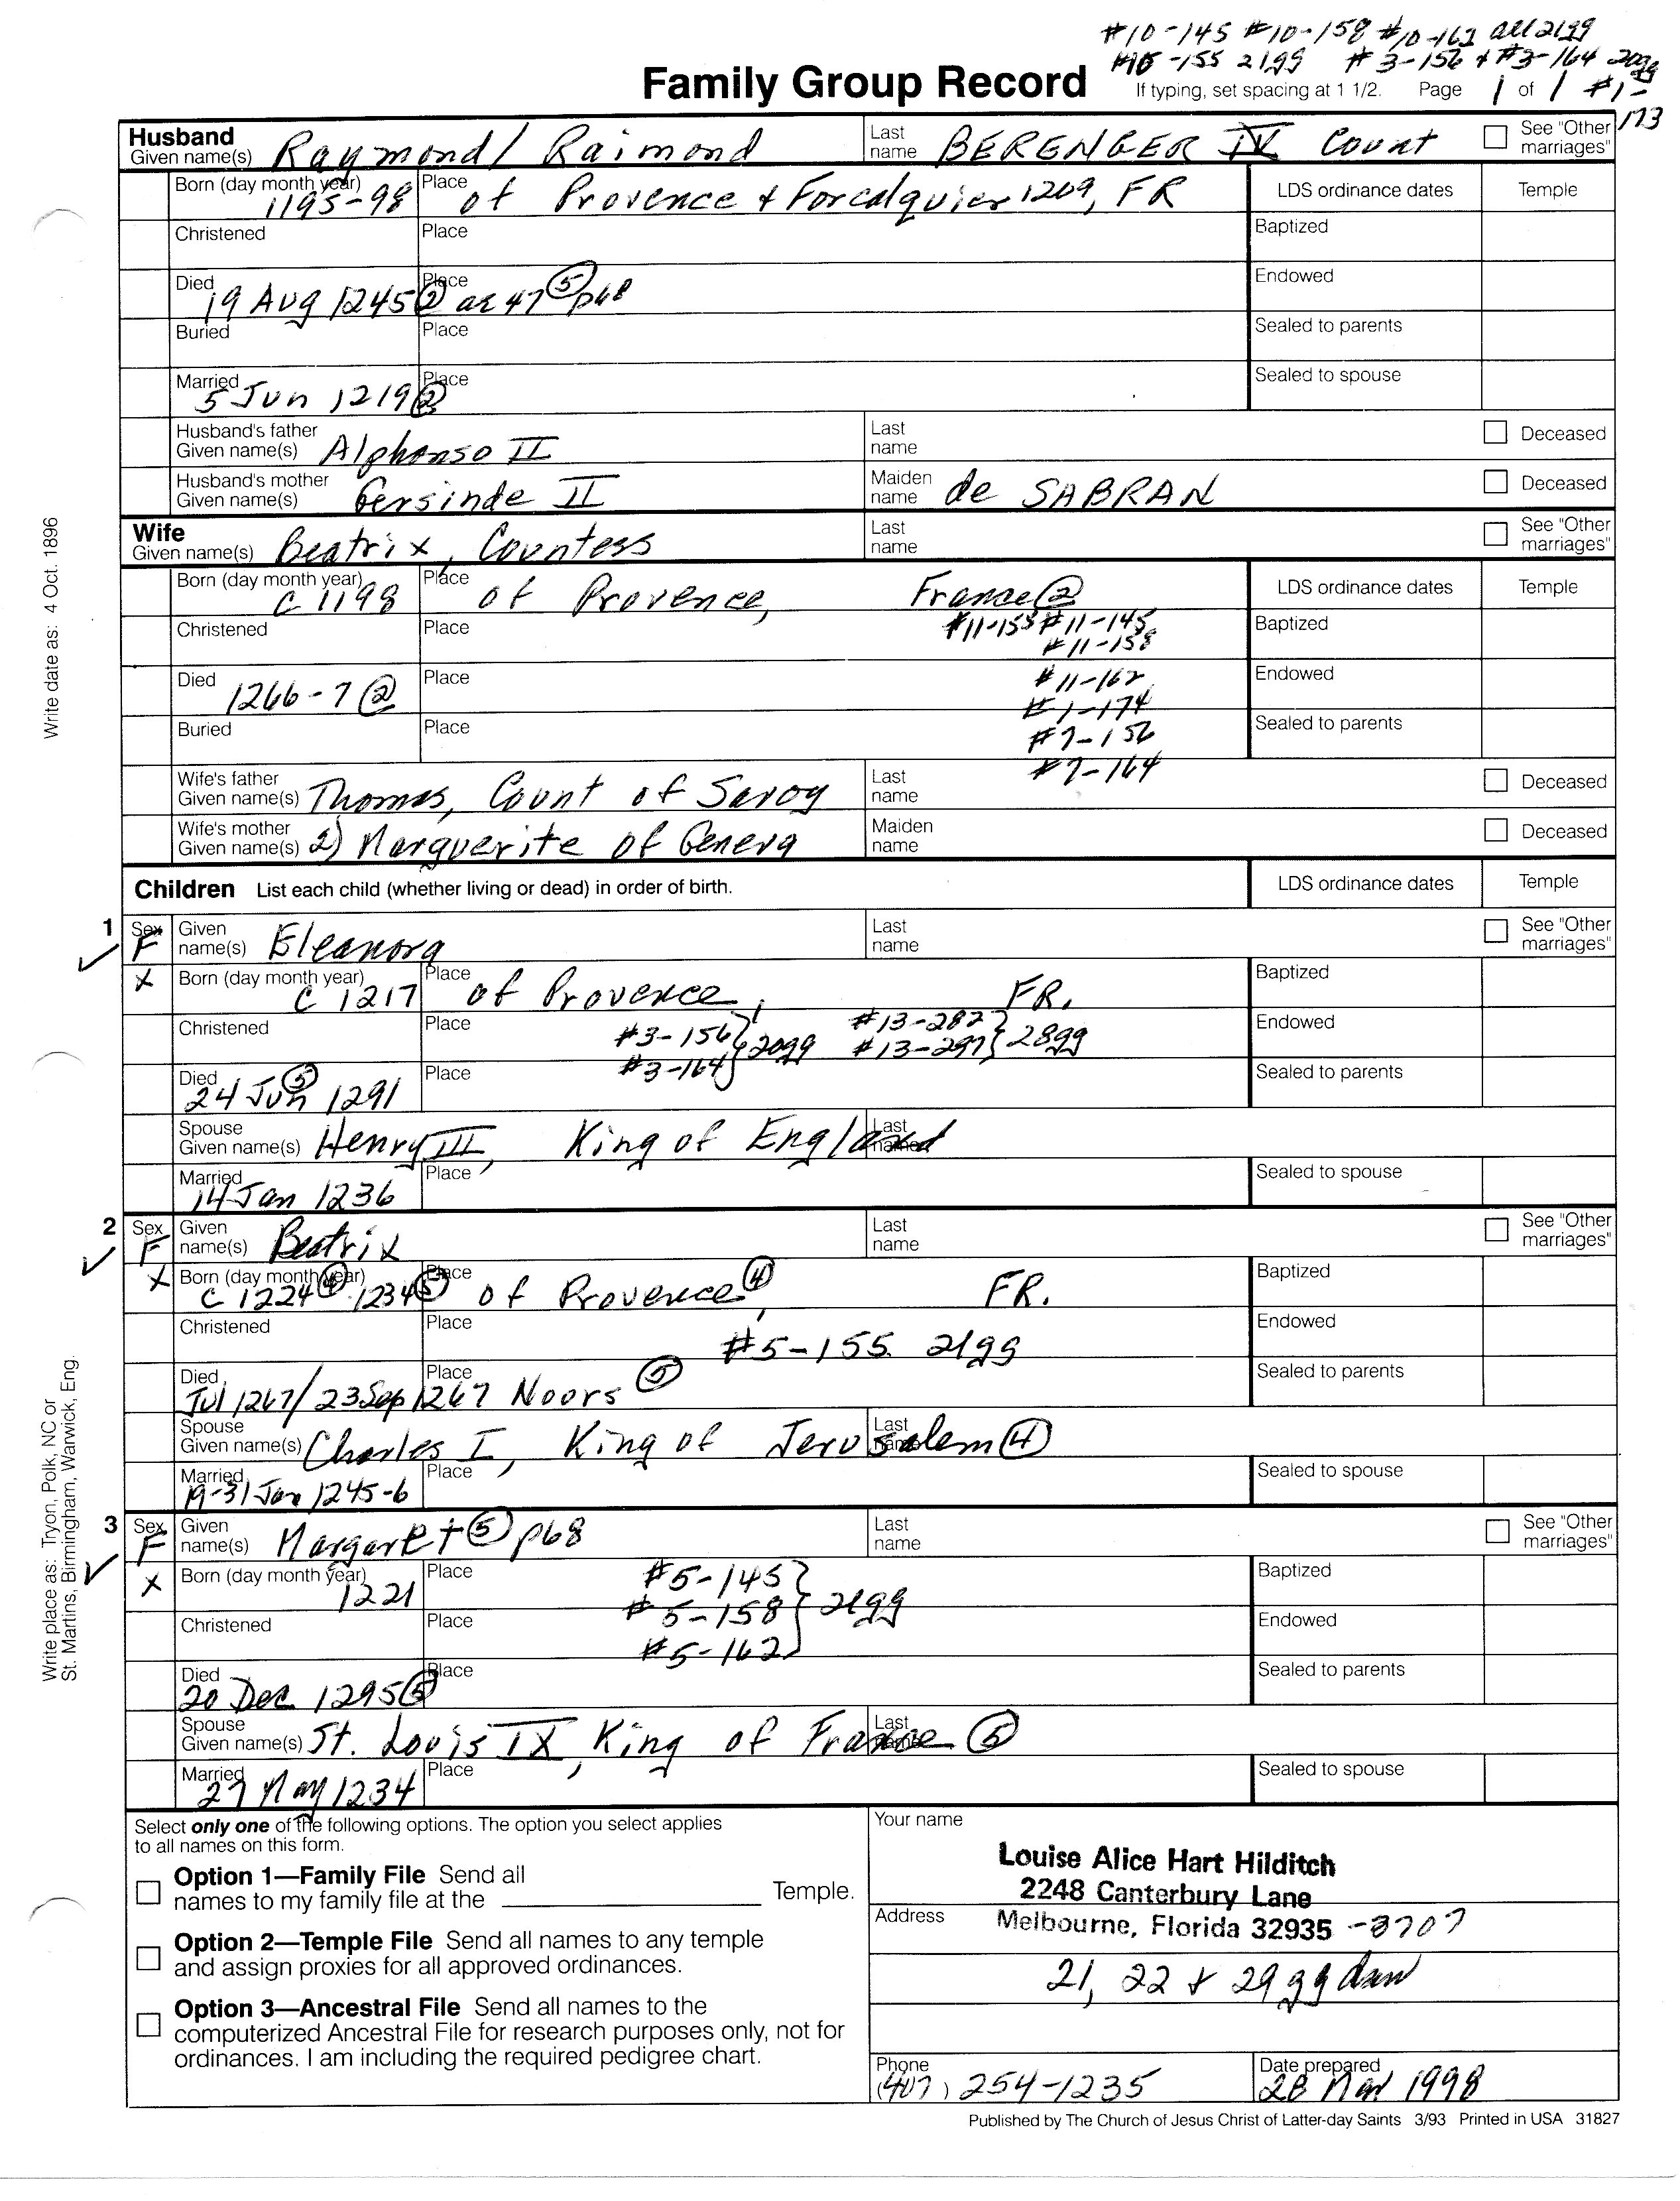 #10-145 #10-158 #10-162 all 21gg
#10-155 21gg # 3-156 + #3-164 20gg
Family Group Record
If typing, set spacing at 1 1/2. Page 1 of 1 #1-173
Husband
Given name(s) Raymond / Raimond Last name BERENGER IV Count See "Other marriages"
Born (day month year) 1195-98 Place of Provence + Forcalquier 1209, FR LDS ordinance dates Temple
Christened Place Baptized
Died 19 Aug 1245 ② Place ae 47 ⑤ p68 Endowed
Buried Place Sealed to parents
Married 5 Jun 1219 ② Place Sealed to spouse
Husband's father
Given name(s) Alphonso II Last name Deceased
Husband's mother
Given name(s) Gersinde II Maiden name de SABRAN Deceased
Wife
Given name(s) Beatrix, Countess Last name See "Other marriages"
Born (day month year) C 1198 Place of Provence, France ② LDS ordinance dates Temple
Christened Place #11-155 #11-145 Baptized
#11-158
Died 1266-7 ② Place #11-162 Endowed
#1-174
Buried Place #7-156 Sealed to parents
#7-164
Wife's father
Given name(s) Thomas, Count of Savoy Last name Deceased
Wife's mother
Given name(s) 2) Marguerite of Geneva Maiden name Deceased
Children List each child (whether living or dead) in order of birth. LDS ordinance dates Temple
1 Sex F Given name(s) Eleanora Last name See "Other marriages"
X Born (day month year) C 1217 Place of Provence, FR. Baptized
Christened Place #3-156 #3-164 } 20gg #13-282 #13-297 } 28gg Endowed
Died 24 Jun ⑤ 1291 Place Sealed to parents
Spouse
Given name(s) Henry III, King of England Last name
Married 14 Jan 1236 Place Sealed to spouse
2 Sex F Given name(s) Beatrix Last name See "Other marriages"
X Born (day month year) C 1224 ④ 1234 ⑤ Place of Provence ④, FR. Baptized
Christened Place #5-155 21gg Endowed
Died Jul 1267/23 Sep 1267 Place Noors ⑤ Sealed to parents
Spouse
Given name(s) Charles I, King of Jerusalem ④ Last name
Married 19-31 Jan 1245-6 Place Sealed to spouse
3 Sex F Given name(s) Margaret ⑤ p68 Last name See "Other marriages"
X Born (day month year) 1221 Place #5-145 Baptized
Christened Place #5-158 } 21gg Endowed
#5-162
Died 20 Dec 1295 ⑤ Place Sealed to parents
Spouse
Given name(s) St. Louis IX, King of France ⑤ Last name
Married 27 May 1234 Place Sealed to spouse
Select only one of the following options. The option you select applies
to all names on this form.
Option 1—Family File Send all
names to my family file at the Temple.
Option 2—Temple File Send all names to any temple
and assign proxies for all approved ordinances.
Option 3—Ancestral File Send all names to the
computerized Ancestral File for research purposes only, not for
ordinances. I am including the required pedigree chart.
Your name
Louise Alice Hart Hilditch
2248 Canterbury Lane
Address Melbourne, Florida 32935 -3707
21, 22 & 29 gg dau
Phone (407) 254-1235 Date prepared 28 Mar 1998
Published by The Church of Jesus Christ of Latter-day Saints 3/93 Printed in USA 31827
Write date as: 4 Oct. 1896
Write place as: Tryon, Polk, NC or
St. Martins, Birmingham, Warwick, Eng.